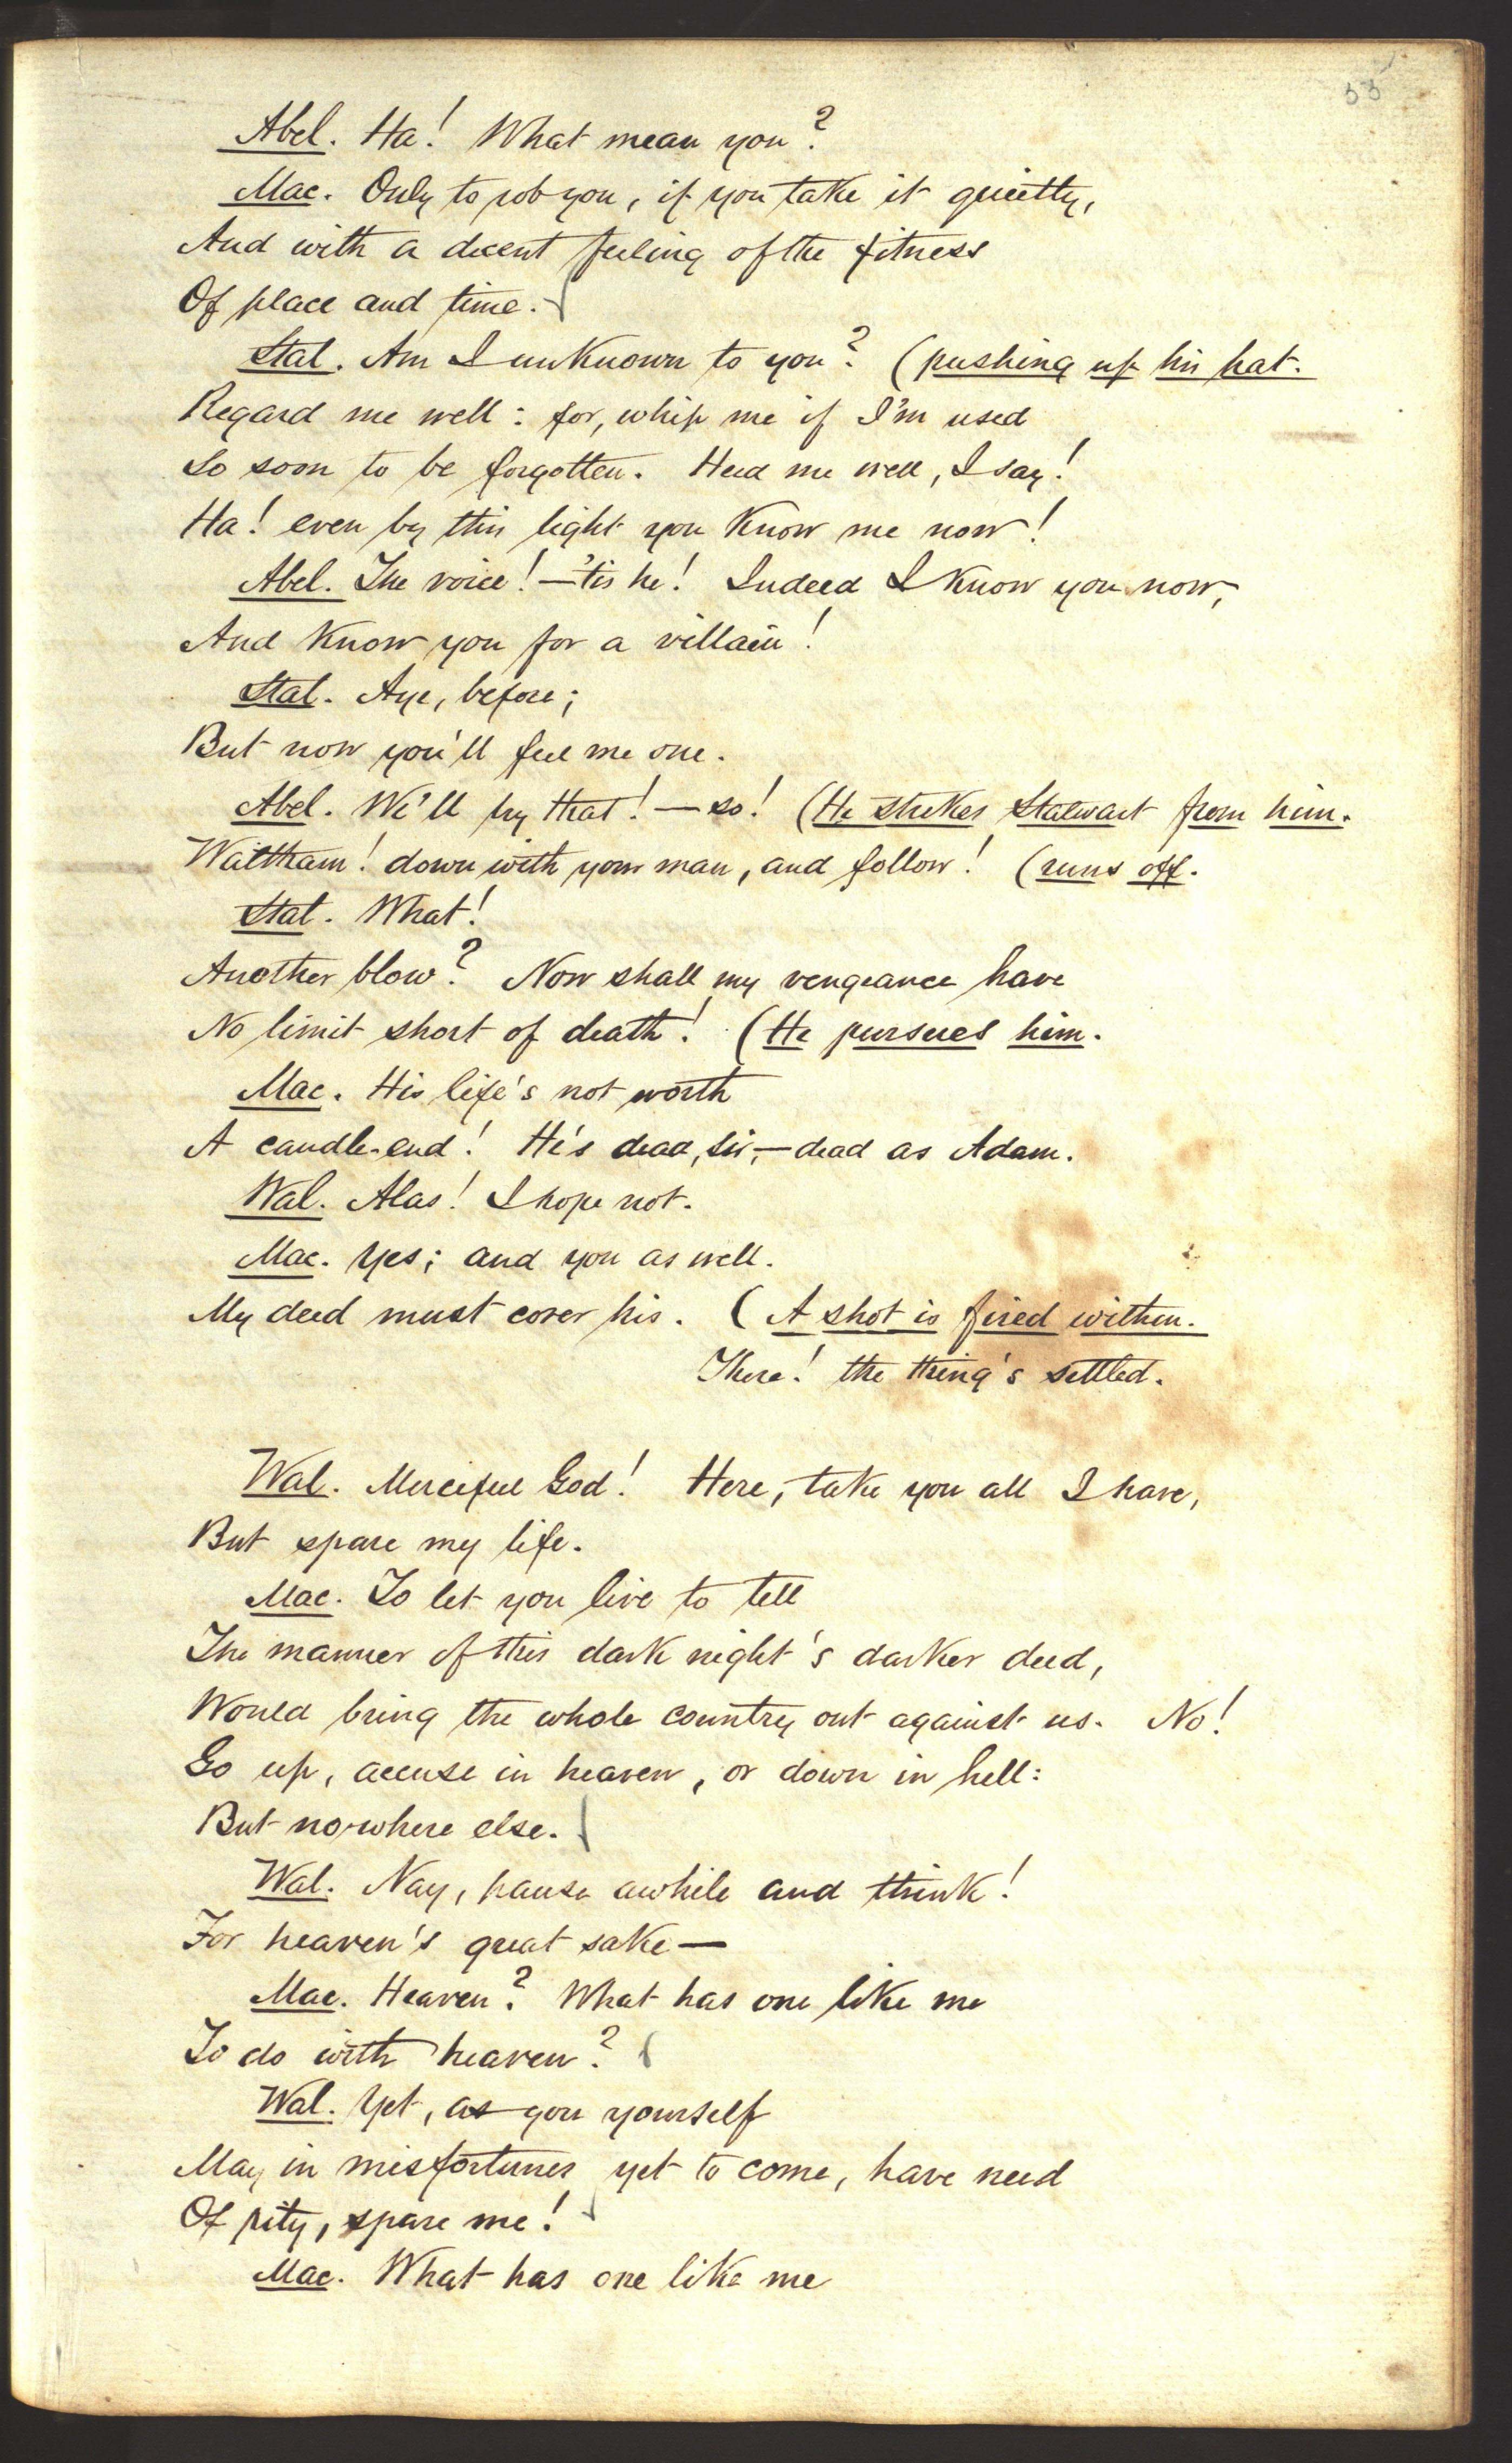 53
Abel. Ha! What mean you?
Mac. Only to rob you, if you take it quietly,
And with a decent feeling of the fitness
Of place and time.
Stal. Am I unknown to you? (pushing up his hat.
Regard me well: for, whip me if I'm used
So soon to be forgotten. Heed me well, I say!
Ha! even by this light you know me now!
Abel. The voice!—'tis he! Indeed I know you now,
And know you for a villain!
Stal. Aye, before;
But now you'll feel me one.
Abel. We'll try that!—so! (He strikes Stalwart from him.
Waltham! down with your man, and follow! (runs off.
Stal. What!
Another blow? Now shall my vengeance have
No limit short of death! (He pursues him.
Mac. His life's not worth
A candle-end! He's dead, sir,—dead as Adam.
Wal. Alas! I hope not.
Mac. Yes; and you as well.
My deed must cover his. (A shot is fired within.
There! the thing's settled.
Wal. Merciful God! Here, take you all I have,
But spare my life.
Mac. To let you live to tell
The manner of this dark night's darker deed,
Would bring the whole country out against us. No!
Go up, accuse in heaven, or down in hell:
But nowhere else.
Wal. Nay, pause awhile and think!
For heaven's great sake—
Mac. Heaven? What has one like me
To do with heaven?
Wal. Yet, as you yourself
May in misfortunes yet to come, have need
Of pity, spare me!
Mac. What has one like me